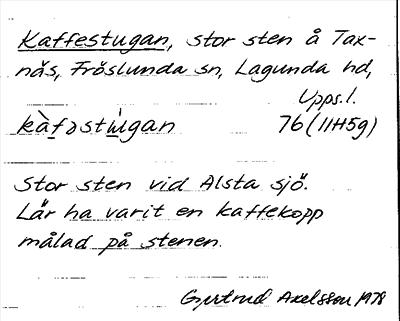 Kaffestugan, stor sten å Tax-
näs, Fröslunda sn, Lagunda hd,
Upps.l.
kàfəstẁgan 76(11H5g)
Stor sten vid Alsta sjö.
Lär ha varit en kaffekopp
målad på stenen.
Gertrud Axelsson 1978